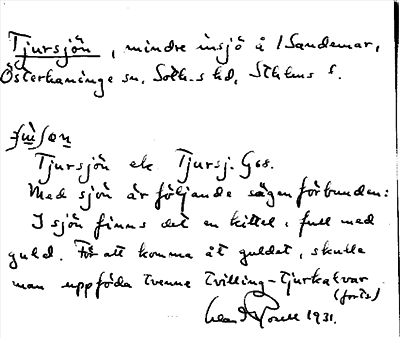 Tjursjön, mindre insjö å Sandemar,
Österhaninge sn, Soth-s hd, Sthlms l.
Tjursjön ek Tjursj. G68.
Med sjön är följande sägen förbunden:
I sjön finns det en kittel, full med
guld. För att komma åt guldet, skulle
man uppföda tvenne tvilling-tjurkalvar
(forts)
1931.